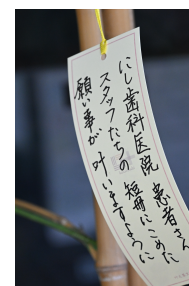 にし歯科医院 患者さん
スタッフたちの 短冊にこめた
願い事が 叶いますように